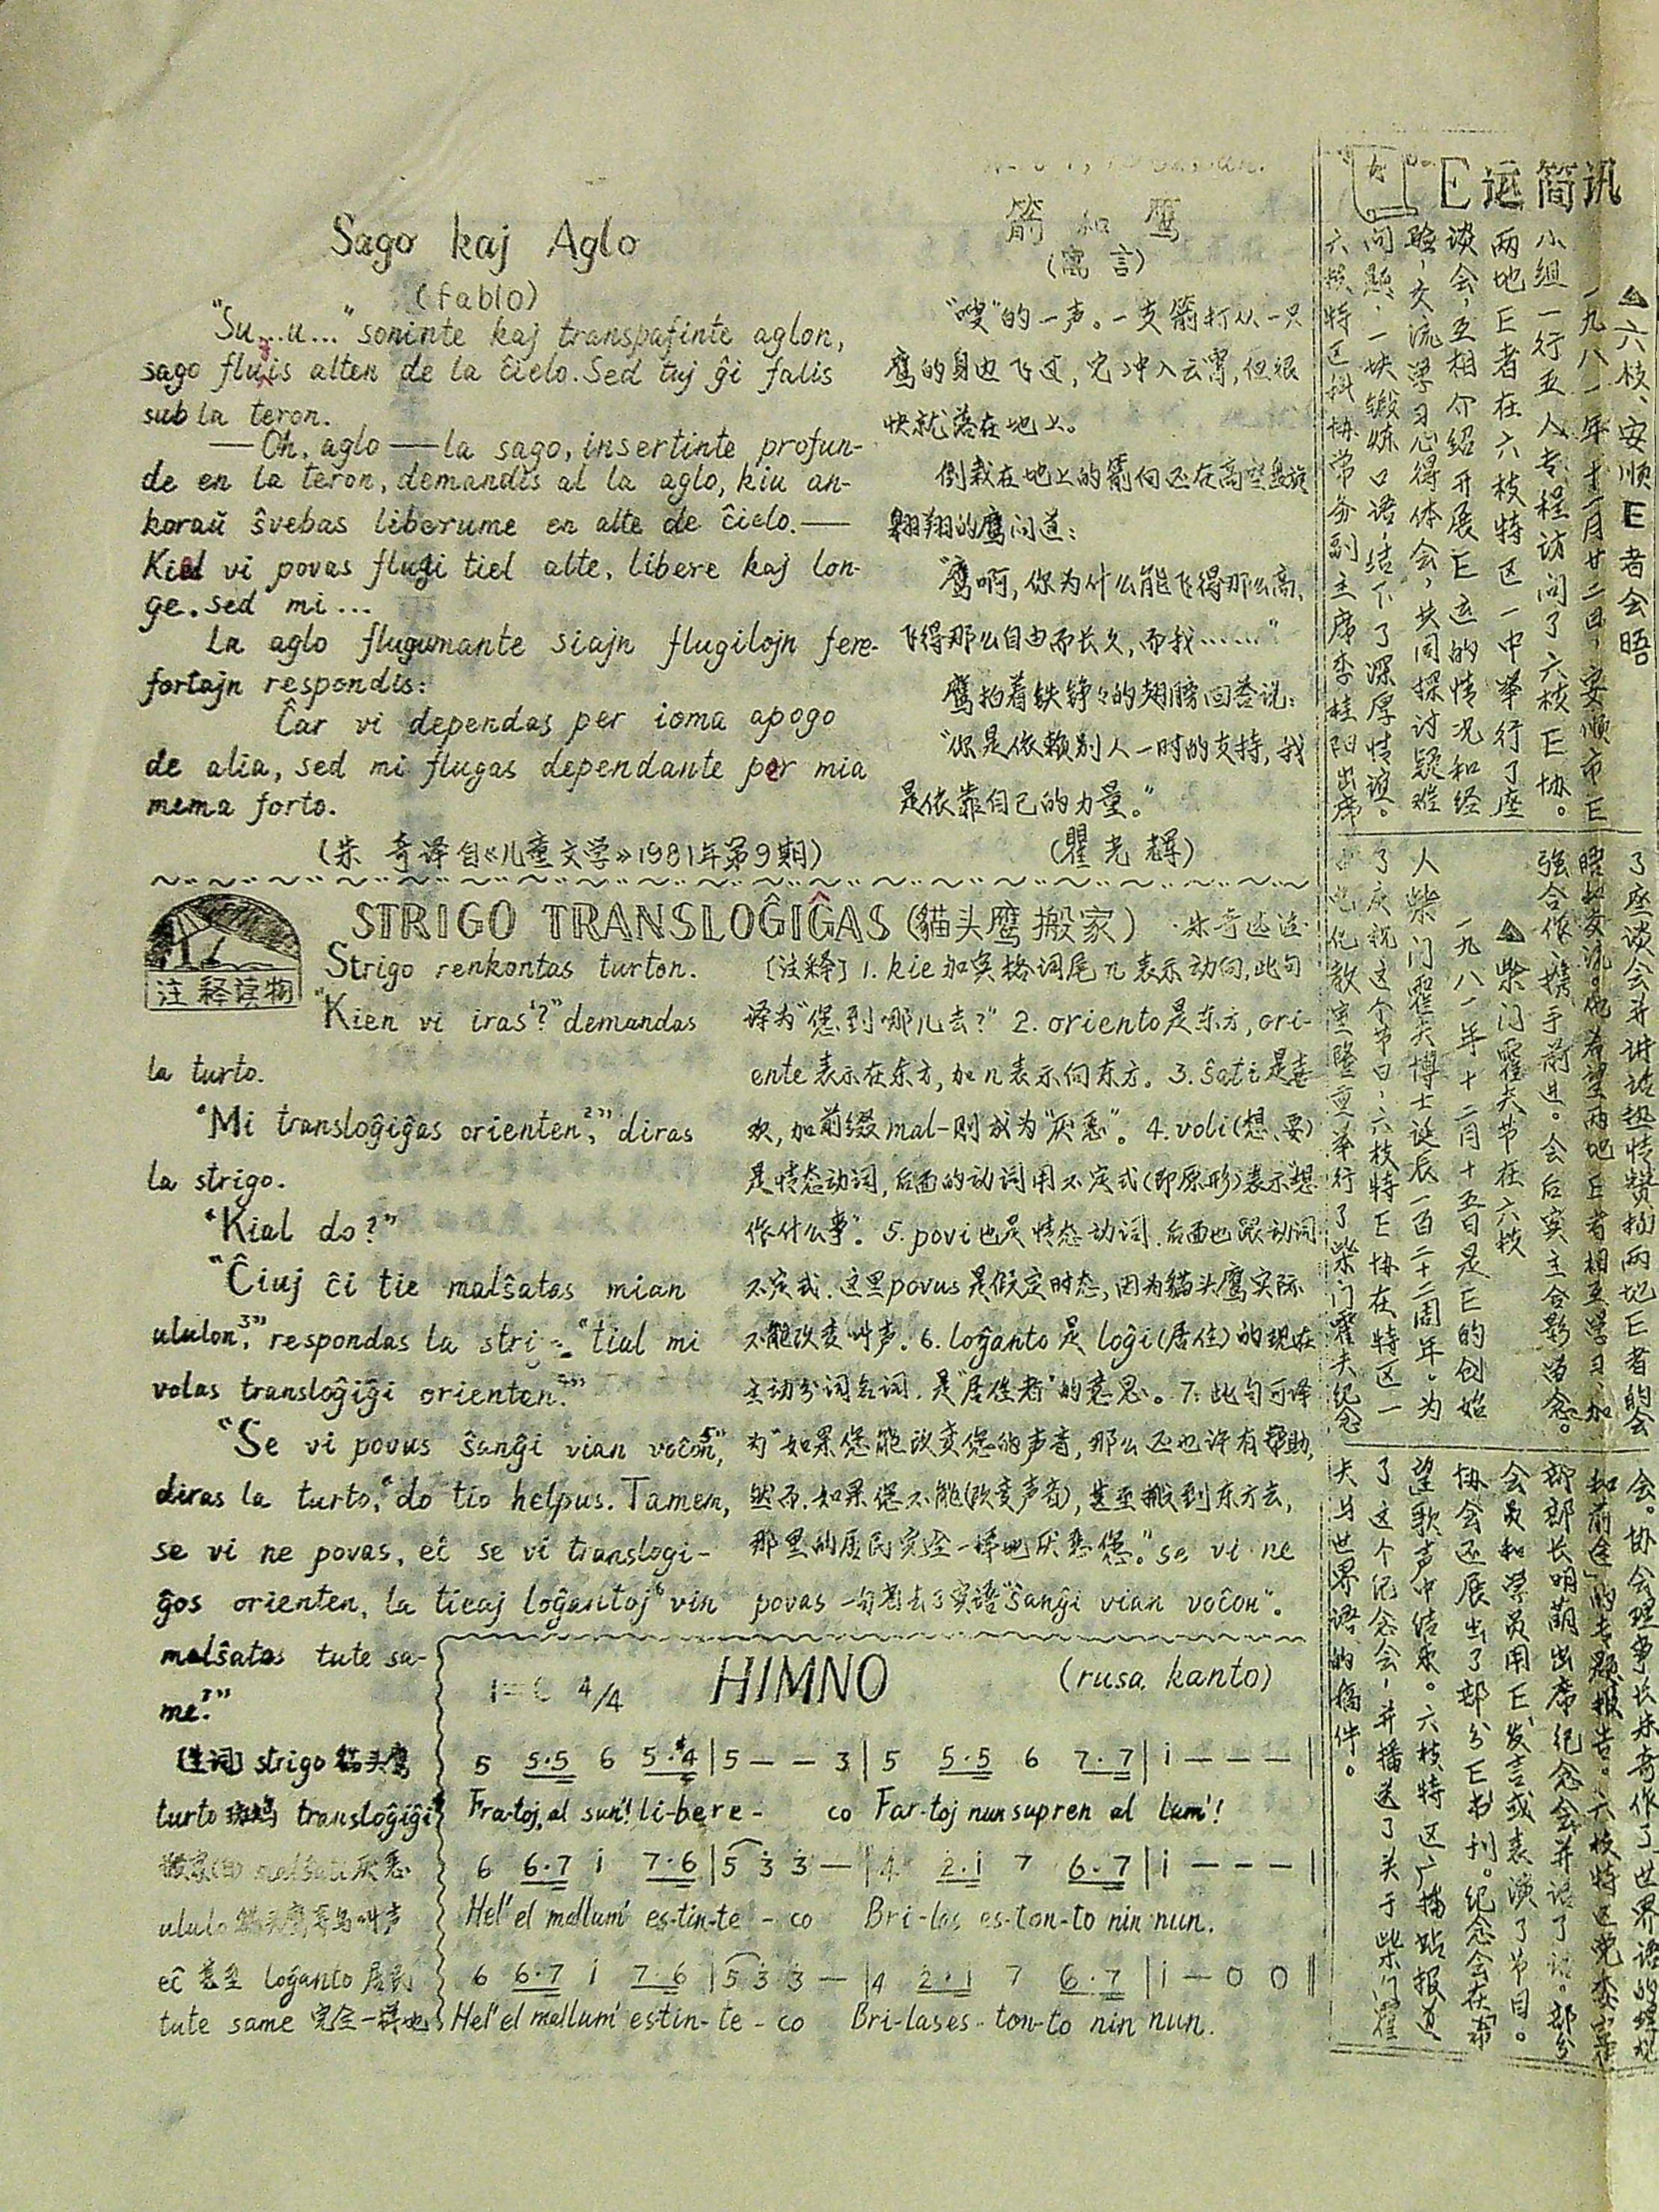 Sago kaj Aglo
(fablo)
"Su...u..." soninte kaj transpafinte aglon,
sago fluis alten de la ĉielo. Sed tuj ĝi falis
sub la teron.
— Oh, aglo — la sago, insertinte profun-
de en la teron, demandis al la aglo, kiu an-
koraŭ ŝvebas liberume en alte de ĉielo. —
Kiel vi povas flugi tiel alte, libere kaj lon-
ge. sed mi...
La aglo flugumante siajn flugilojn fere-
fortajn respondis:
Ĉar vi dependas per ioma apogo
de alia, sed mi flugas dependante per mia
mema forto.
(朱奇译自《儿童文学》1981年第9期)
箭和鹰
(寓言)
"嗖"的一声。一支箭打从一只
鹰的身边飞过,它冲入云霄,但很
快就落在地上。
倒栽在地上的箭向还在高空盘旋
翱翔的鹰问道:
"鹰啊,你为什么能飞得那么高、
飞得那么自由而长久,而我……"
鹰拍着铁铮々的翅膀回答说:
"你是依赖别人一时的支持,我
是依靠自己的力量。"
(瞿光辉)
注释读物
STRIGO TRANSLOĜIĜAS (貓头鹰搬家) 朱奇选注
Strigo renkontas turton.
"Kien vi iras¹?" demandas
la turto.
"Mi transloĝiĝas orienten,²" diras
la strigo.
"Kial do?"
"Ĉiuj ĉi tie malŝatas mian
ululon,³" respondas la stri "tial mi
volas transloĝiĝi orienten.⁴"
"Se vi povus ŝanĝi vian voĉon,⁵"
diras la turto, "do tio helpus. Tamen,
se vi ne povas, eĉ se vi translogi-
ĝos orienten, la tieaj loĝantoj⁶ vin
malŝatas tute sa-
me.⁷"
[生词] strigo 貓头鹰
turto 斑鸠 transloĝiĝi
搬家(自) malŝati 厌恶
ululo 貓头鹰等鸟叫声
eĉ 甚至 loĝanto 居民
tute same 完全一样地
[注释] 1. kie 加宾格词尾 n 表示动向,此句
译为"您到哪儿去?" 2. oriento 是东方, ori-
ente 表示在东方,加 n 表示向东方。3. ŝati 是喜
欢,加前缀 mal- 则成为"厌恶"。4. voli (想、要)
是情态动词,后面的动词用不定式(即原形)表示"想
作什么事"。5. povi 也是情态动词,后面也跟动词
不定式.这里 povus 是假定时态,因为貓头鹰实际
不能改变叫声。6. loĝanto 是 loĝi (居住) 的现在
主动分词名词,是"居住者"的意思。7. 此句可译
为"如果您能改变您的声音,那么还也许有帮助,
然而,如果您不能(改变声音),甚至搬到东方去,
那里的居民完全一样地厌恶您。" se vi ne
povas 一句省去了宾语 "ŝanĝi vian voĉon"。
1=C 4/4 HIMNO (rusa kanto)
5 5·5 6 5·4 | 5 — — 3 | 5 5·5 6 7·7 | i — — — |
Fra-toj, al sun'! li-bere- co Far-toj nun supren al lum'!
6 6·7 i 7·6 | 5 3 3 — | 4 2·i 7 6·7 | i — — — |
Hel' el mallum' es-tin-te - co Bri-las es-ton-to nin nun.
6 6·7 i 7·6 | 5 3 3 — | 4 2·i 7 6·7 | i — 0 0 ‖
Hel' el mallum' es-tin-te - co Bri-las es-ton-to nin nun.
E运简讯
△六枝、安顺E者会晤
一九八一年十一月廿二日,安顺市E
小组一行五人专程访问了六枝E协。
两地E者在六枝特区一中举行了座
谈会,互相介绍开展E运的情况和经
验,交流学习心得体会,共同探讨疑难
问题,一块锻炼口语,结下了深厚情谊。
六枝特区科协常务副主席李桂阳出席
了座谈会并讲话热情赞扬两地E者的会
晤和交流。他希望两地E者相互学习、加
强合作、携手前进。会后宾主合影留念。
△柴门霍夫节在六枝
一九八一年十二月十五日是E的创始
人柴门霍夫博士诞辰一百二十二周年。为
了庆祝这个节日,六枝特E协在特区一
中电化教室隆重举行了柴门霍夫纪念
会。协会理事长朱奇作了"世界语的现况
和前途"的专题报告。六枝特区党委宣传
部部长明萌出席纪念会并讲了话。部分
会员和学员用E发言或表演了节目。
协会还展出了部分E书刊。纪念会在"希
望"歌声中结束。六枝特区广播站报道
了这个纪念会,并播送了关于柴门霍
夫与世界语的稿件。